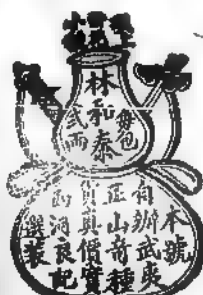 林和泰
每包
弍両
本號
自辦武夷
正山奇種
貨真價實
洞良記
選裝